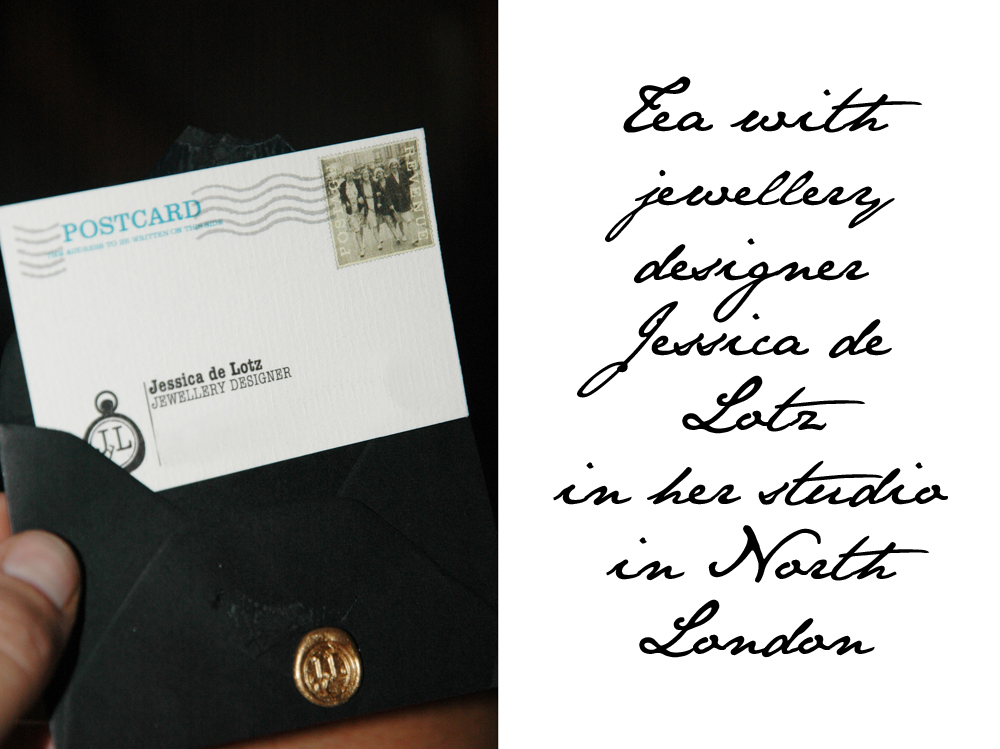 POSTCARD
THE ADDRESS TO BE WRITTEN ON THIS SIDE
POST
REVENUE
Jessica de Lotz
JEWELLERY DESIGNER
Tea with
jewellery
designer
Jessica de
Lotz
in her studio
in North
London